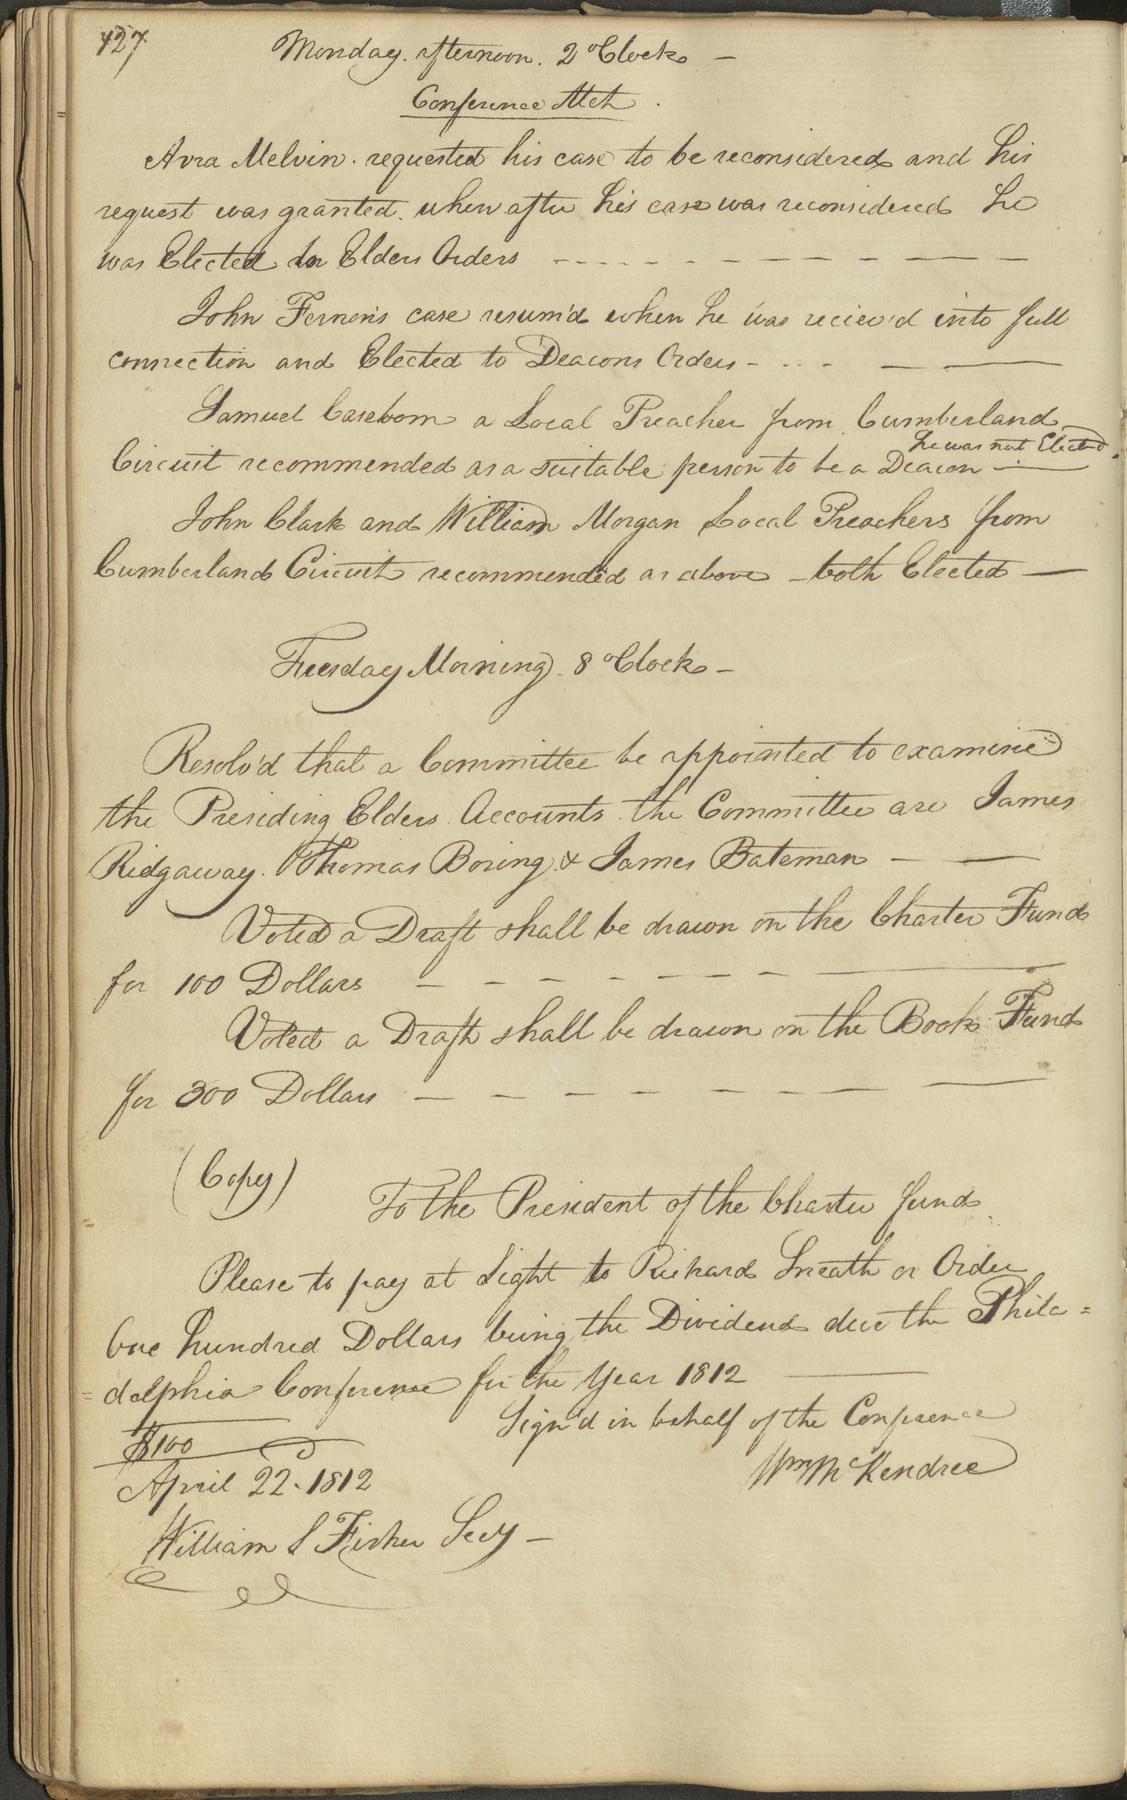 127
Monday. afternoon. 2 oClock —
Conference Met.
Avra Melvin. requested his case to be reconsidered and his
request was granted. when after his case was reconsidered he
was Elected to Elders Orders - - - - - - — — — — —
John Fernon's case resum'd when he was reciev'd into full
connection and Elected to Deacons Orders - . . - — —
Samuel Casebom a Local Preacher from Cumberland
he was not Elected.
Circuit recommended as a suitable person to be a Deacon —
John Clark and William Morgan Local Preachers from
Cumberland Circuit recommended as above — both Elected —
Tuesday Morning. 8 oClock —
Resolv'd that a Committee be appointed to examine
the Presiding Elders Accounts. the Committee are James
Ridgaway. Thomas Boring. & James Bateman — —
Voted a Draft shall be drawn on the Charter Fund
for 100 Dollars — — — — — — —
Voted a Draft shall be drawn on the Book Fund
for 300 Dollars — — — — — — — —
(Copy)
To the President of the Charter fund
Please to pay at Sight to Richard Sneath or Order
One hundred Dollars being the Dividend due the Phila=
=delphia Conference for the Year 1812 —
Sign'd in behalf of the Conference
$100
Wm McKendree
April 22. 1812
William S Fisher Secy —